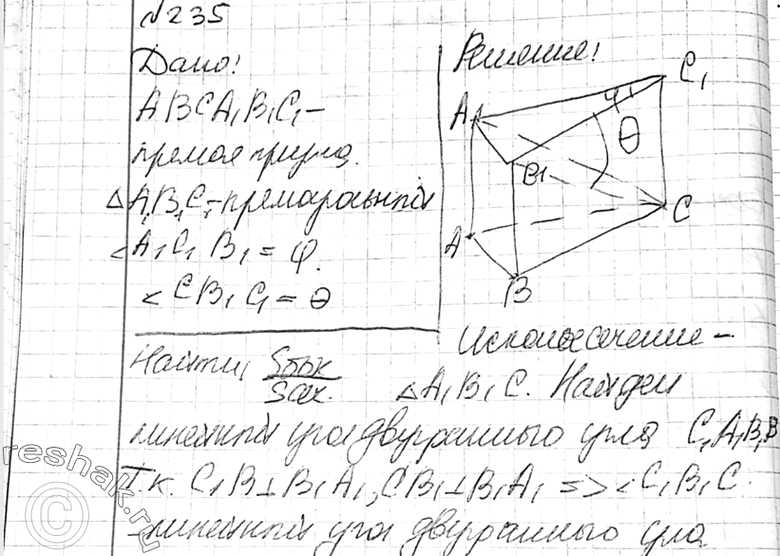 №235
Дано:
ABCA₁B₁C₁ –
прямая призма.
△A₁B₁C₁ – прямоугольный
<A₁C₁B₁ = φ.
<CB₁C₁ = θ
Найти: Sбок/Sсеч.
Решение:
A₁ B₁ C₁ φ θ
A B C
Искомое сечение –
△A₁B₁C. Найдем
линейный угол двугранного угла C₁A₁B₁B
Т.к. C₁B⊥B₁A₁, CB₁⊥B₁A₁ => <C₁B₁C.
– линейный угол двугранного угла
reshak.ru
©